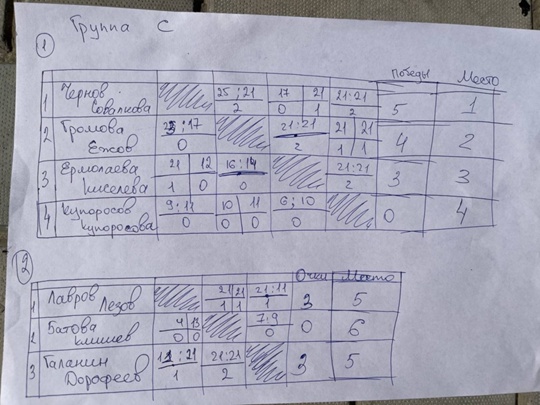 Группа С
1
Победы Место
1 Чернов 25 : 21 17 21 21 : 21
Совалкова 2 0 1 2 5 1
2 Громова 25 : 17 21 : 21 21 21
Ежов 0 2 1 1 4 2
3 Ермолаева 21 12 16 : 14 21 : 21
Киселева 1 0 0 2 3 3
4 Купоросов 9 : 11 10 11 6 ; 10
Купоросова 0 0 0 0 0 4
2
Очки Место
1 Лавров 21 21 21 : 11
Лезов 1 1 1 3 5
2 Батова 4 13 7 : 9
Климов 0 0 0 0 6
3 Галанин : 21 21 : 21
Дорофеев 1 2 3 5